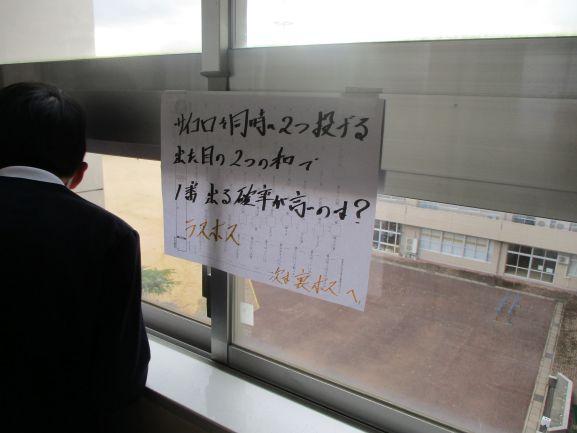 サイコロを同時に2つ投げる
出た目の2つの和で
1番出る確率が高いのは?
ラスボス
次は裏ボスへ